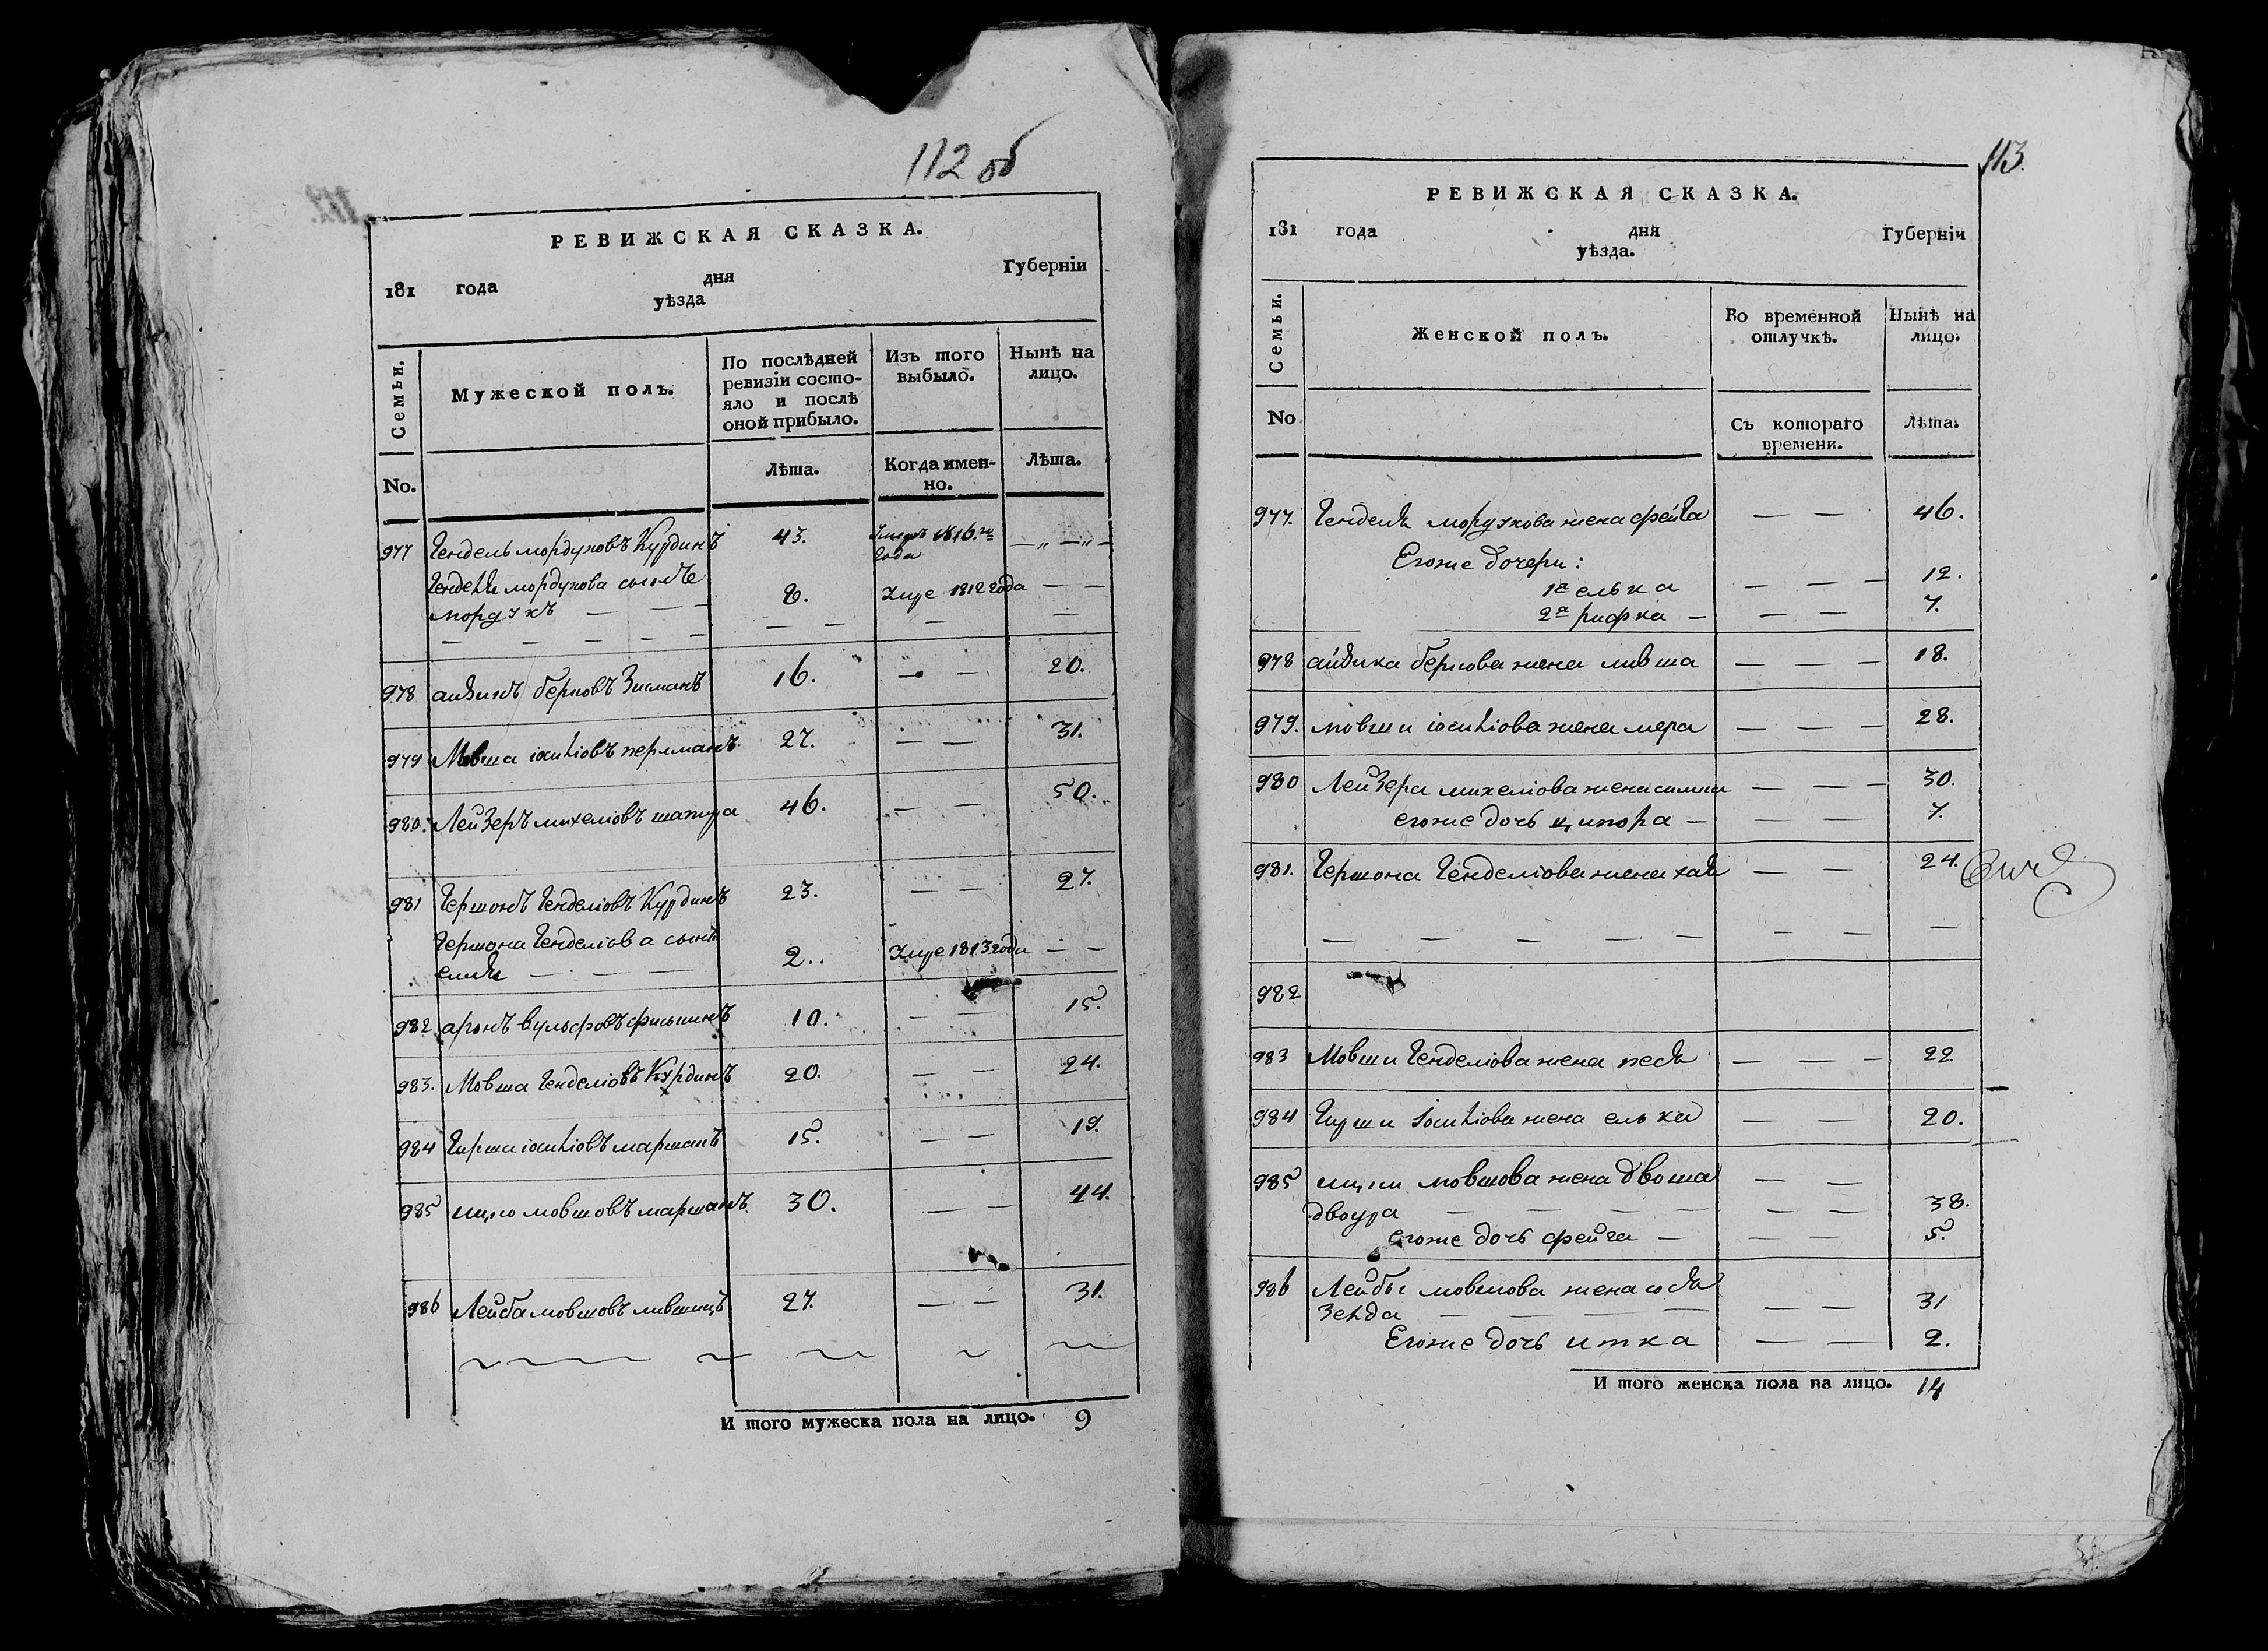 112 об
РЕВИЖСКАЯ СКАЗКА.
181 года дня Губерніи
уѣзда
Семьи.
Мужеской полъ.
По послѣдней ревизіи состо-
яло и послѣ
оной прибыло.
Изъ того
выбыло.
Нынѣ на
лицо.
No.
Лѣта.
Когда имен-
но.
Лѣта.
977 Гендель мордуховъ Курдинъ 43. 1816.го
года
мордухова
мордухъ 8. 1812 года
978 берковъ Зисманъ 16. 20.
979 Мовша перлманъ 27. 31.
980. Лейзеръ михеліовъ шапира 46. 50.
981 Гершонъ Генделіовъ Курдинъ 23. 27.
Гершона Генделіова сынъ
2. 1813 года
982 аронъ вульфовъ 10. 15.
983. Мовша Генделіовъ Курдинъ 20. 24.
984 Гирша маршакъ 15. 19.
985 ицко мовшовъ маршакъ 30. 44.
986 Лейба мовшовъ лившицъ 27. 31.
И того мужеска пола на лицо. 9
113.
РЕВИЖСКАЯ СКАЗКА.
181 года дня Губерніи
уѣзда.
Семьи.
Женской полъ.
Во временной
отлучкѣ.
Нынѣ на
лицо.
No
Съ котораго
времени.
Лѣта.
977. мордухова жена фейга 46.
Егоже дочери:
1я елька 12.
2я рифка 7.
978 беркова жена лившa 18.
979. мовши жена мера 28.
980 Лейзера михеліова жена 30.
егоже дочь ципора 7.
981. Гершона Генделіова жена хая 24.
982
983 Мовши Генделіова жена песя 22
984 Гирши жена елька 20.
985 ицки мовшова жена двоша
двоура 38.
егоже дочь фейга 5.
986 Лейбы мовшова жена
Зелда 31
Егоже дочь итка 2.
И того женска пола на лицо. 14